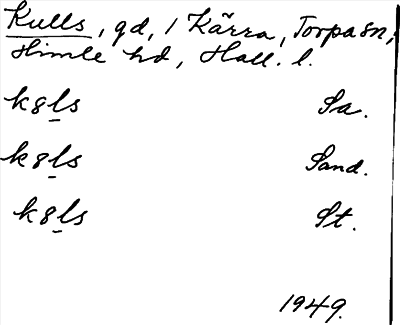 Kulls, gd, i Kärra, Torpa sn,
Himle hd, Hall. l.
k8ls Sa.
k8ls Sand.
k8ls St.
1949.